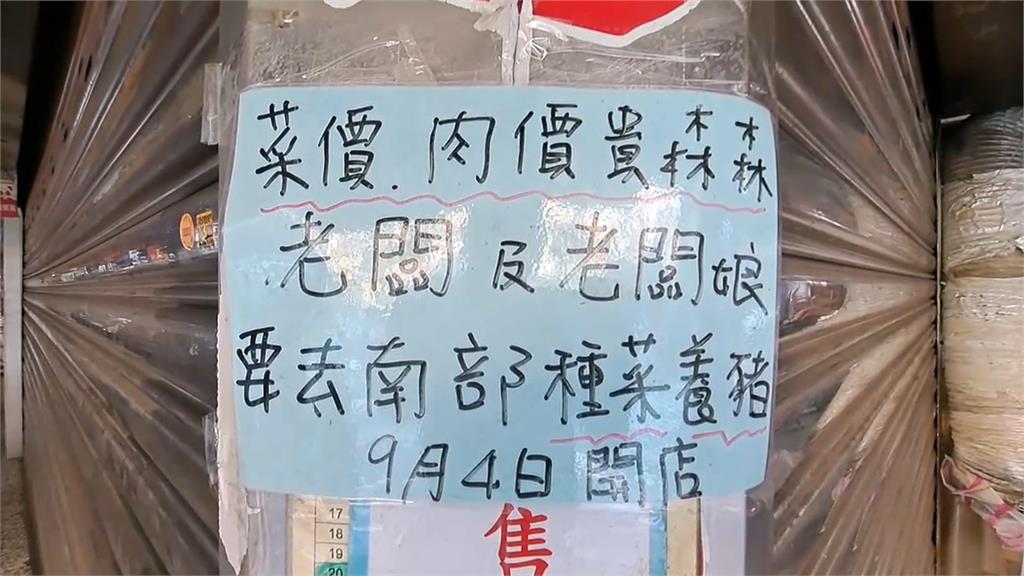 菜價.肉價貴森森
老闆及老闆娘
要去南部種菜養豬
9月4日開店
17
18
19
20
售